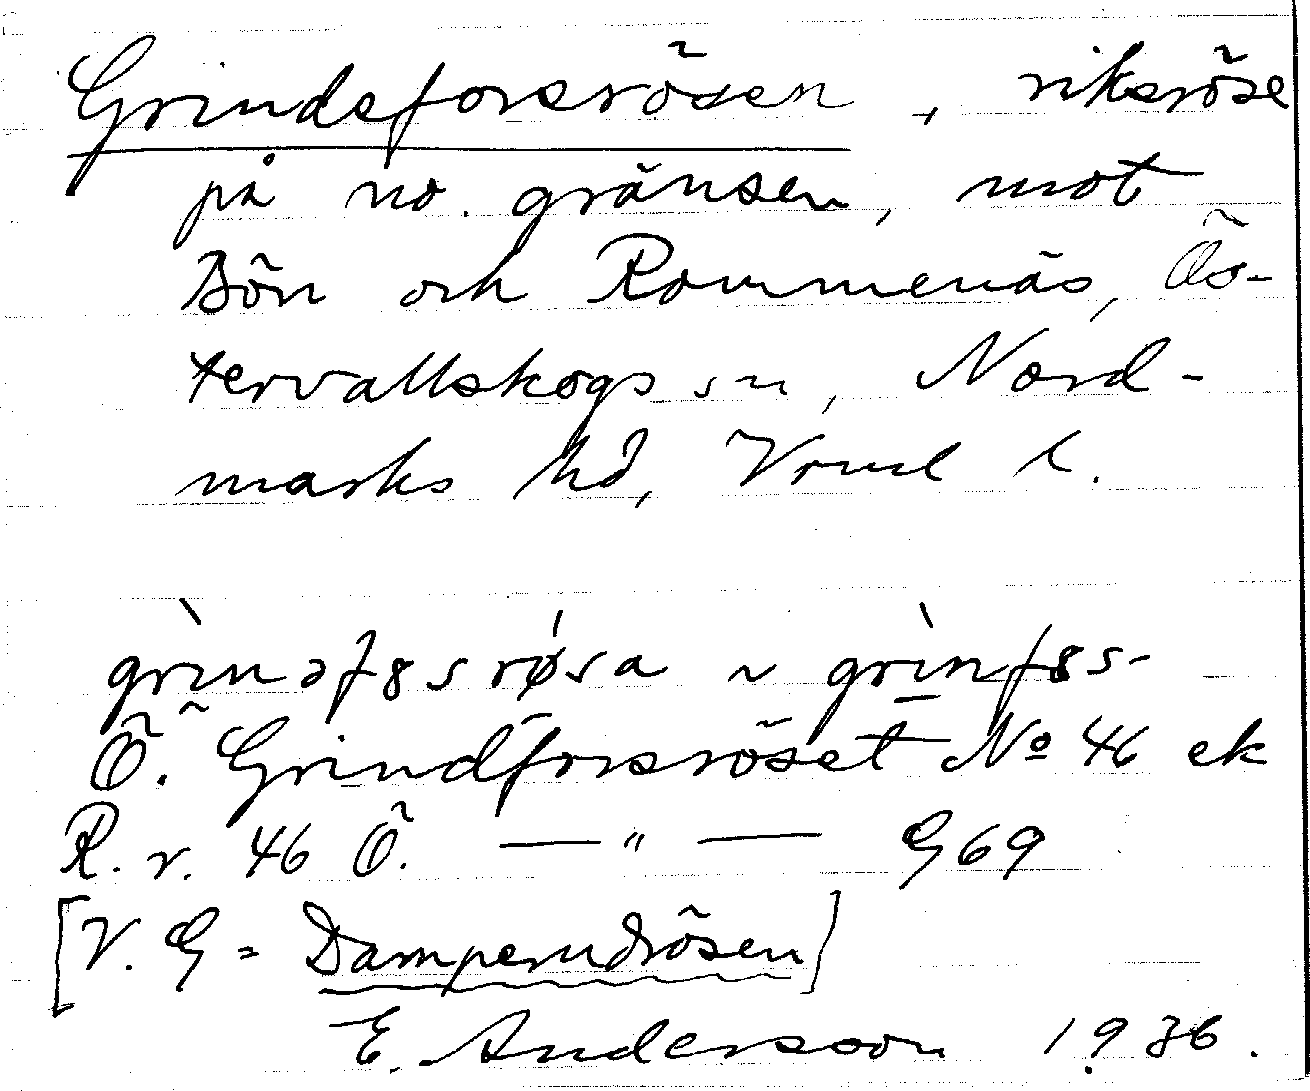 Grindsforsrösen, riksröse
på no. gränsen, mot
Bön och Rommenäs, Ös-
tervallskogs sn, Nord-
marks hd, Vrml l.
grìnəfꞷsrø̍sa ~ grìn̲fꞷs-
Ö. Grindforsröset No 46 ek
R. r. 46 Ö. — " — G69
[V. G = Damperudrösen]
E. Andersson 1936.